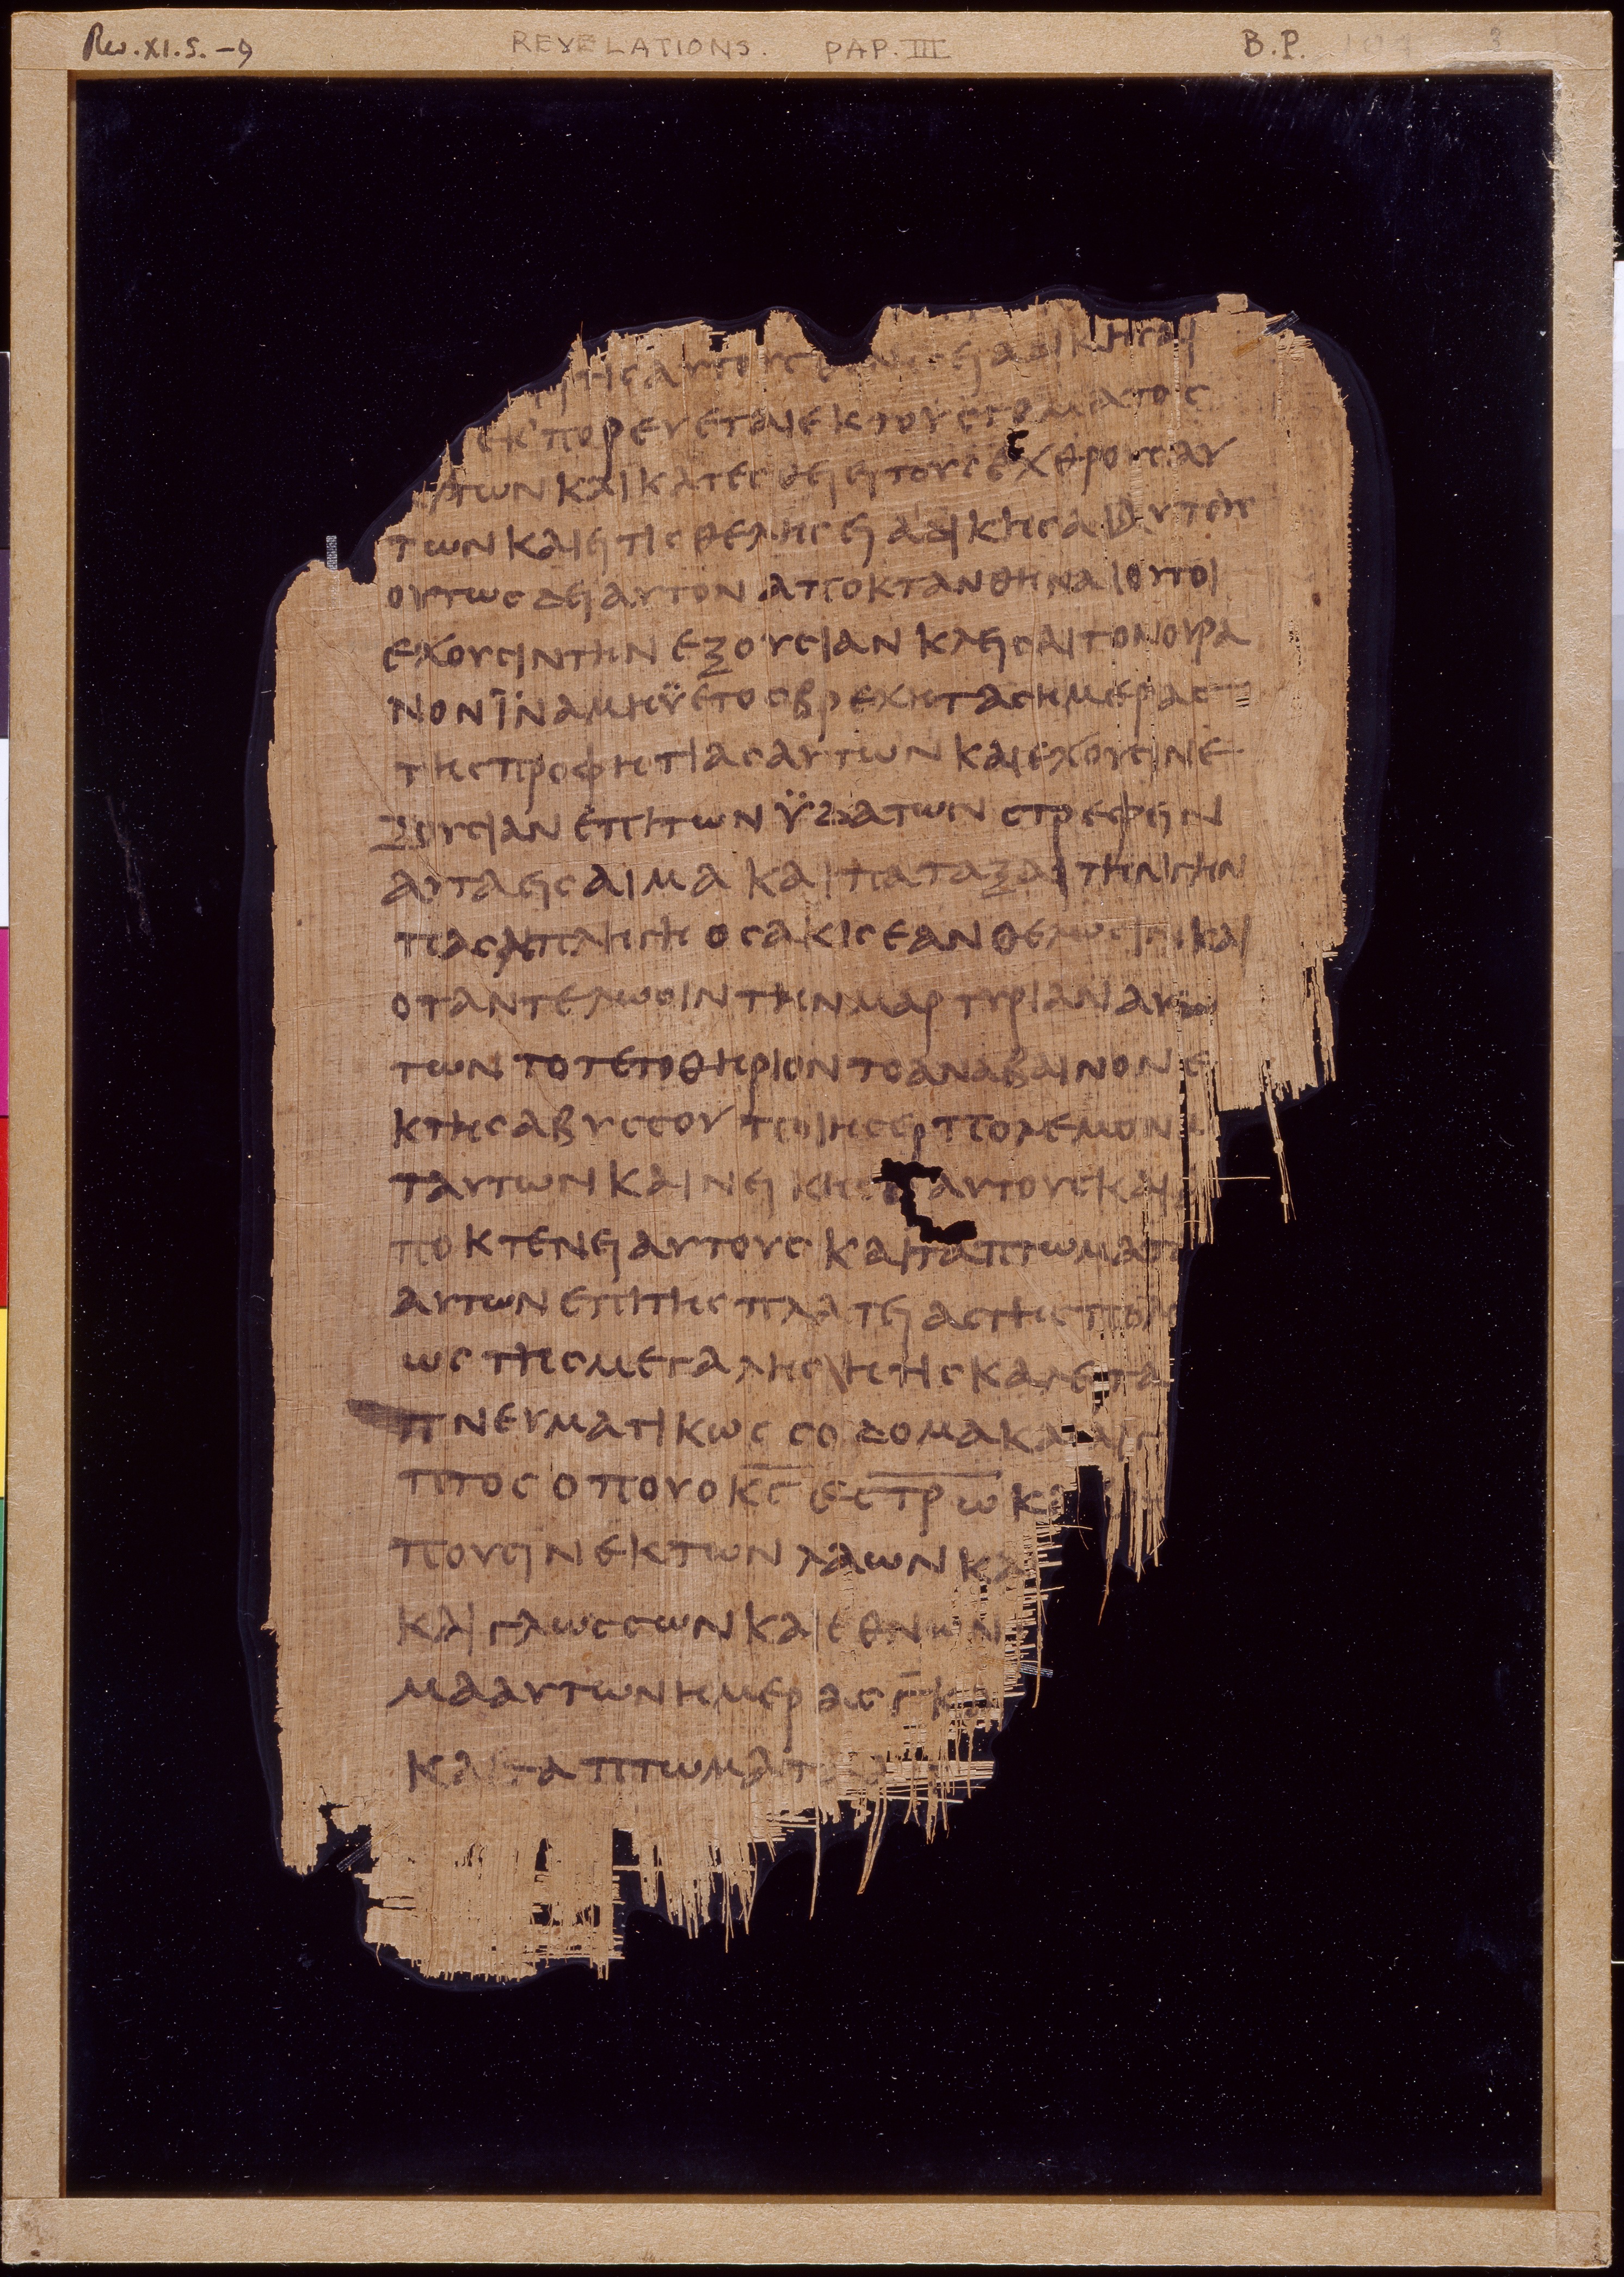 Rev. XI. 5. - 9 REVELATIONS. PAP. III B.P.
τις αυτους αδικησαι
εκ'πορευεται εκ του στοματος
αυτων και κατεσθει ει τους εχθρους αυ
των και ει τις θελησει αδικησαι αυτους
ουτως δει αυτον αποκτανθηναι ουτοι
εχουσιν την εξουσιαν κλεισαι τον ουρα
νον ϊνα μη ϋετος βρεχη τας ημερας
της προφητιας αυτων και εχουσιν ε
ξουσιαν επι των ϋδατων στρεφειν
αυτα εις αιμα και παταξαι την γην
πασν πληγη οσακις εαν θελωσιν και
οταν τελωσιν την μαρτυριαν αυ
των τοτε το θηριον το αναβαινον ε
κ της αβυσσου ποιησει πολεμον
τ αυτων και νεικησει αυτους και
ποκτενει αυτους και τα πτωματ
αυτων επι της πλατειας της πολ
ως της μεγαλης η τις καλειτα
πνευματικως σοδομα και αιγ
πτος οπου ο κ̅ς̅ εστρω κ
πουσιν εκ των λαων κα
και γλωσσων και εθνων
μα αυτων ημερας γ̅ κα
και τα πτωματ